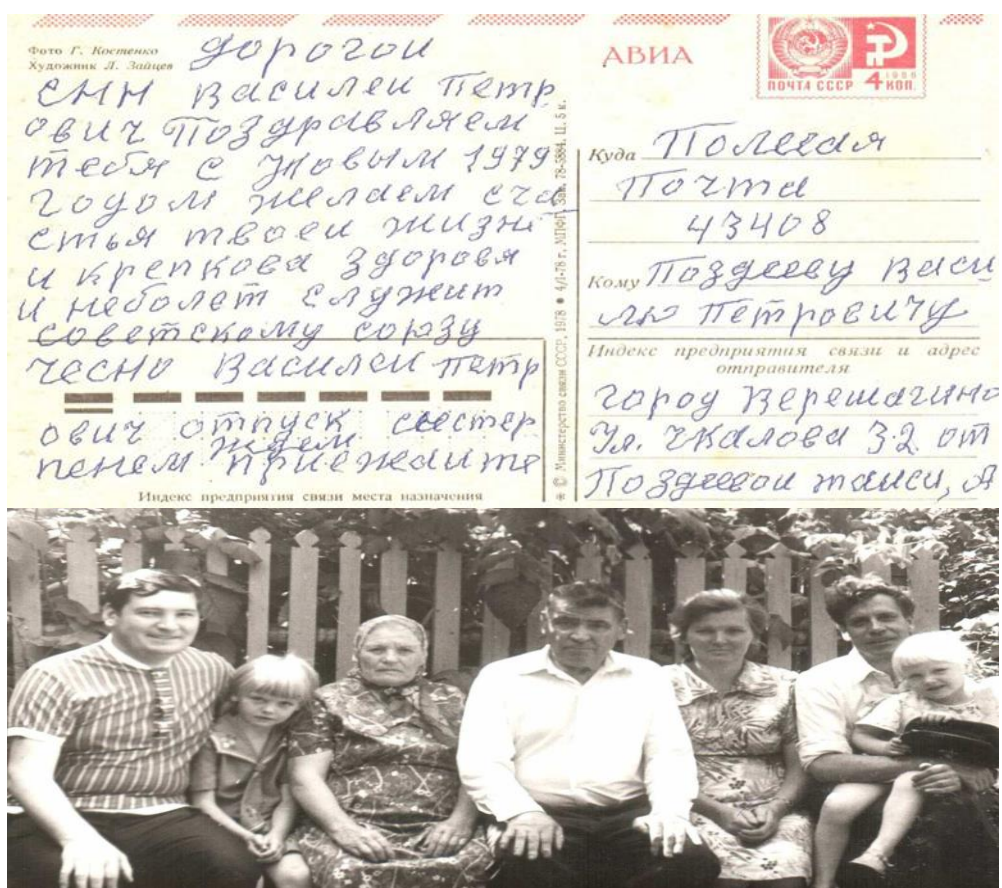 Фото Г. Костенко
Художник Л. Зайцев
дорогои
сын Василеи Петр
ович Поздравляем
тебя с Новым 1979
годом желаем сча
стья твоеи жизне
и крепкова здоровя
и неболет служит
советскому союзу
чесно Василеи Петр
ович отпуск
ждем
пенем приежаите
Индекс предприятия связи места назначения
* © Министерство связи СССР, 1978 • 4/I-78 г., МПФГ. Зак. 78-5884. Ц. 5 к.
АВИА
1966
ПОЧТА СССР 4 КОП.
Куда Полевая
Почта
43408
Кому Поздееву Васи
лю Петровичу
Индекс предприятия связи и адрес
отправителя
город Верещагино
Ул. Чкалова 32 от
Поздеевои таиси, А